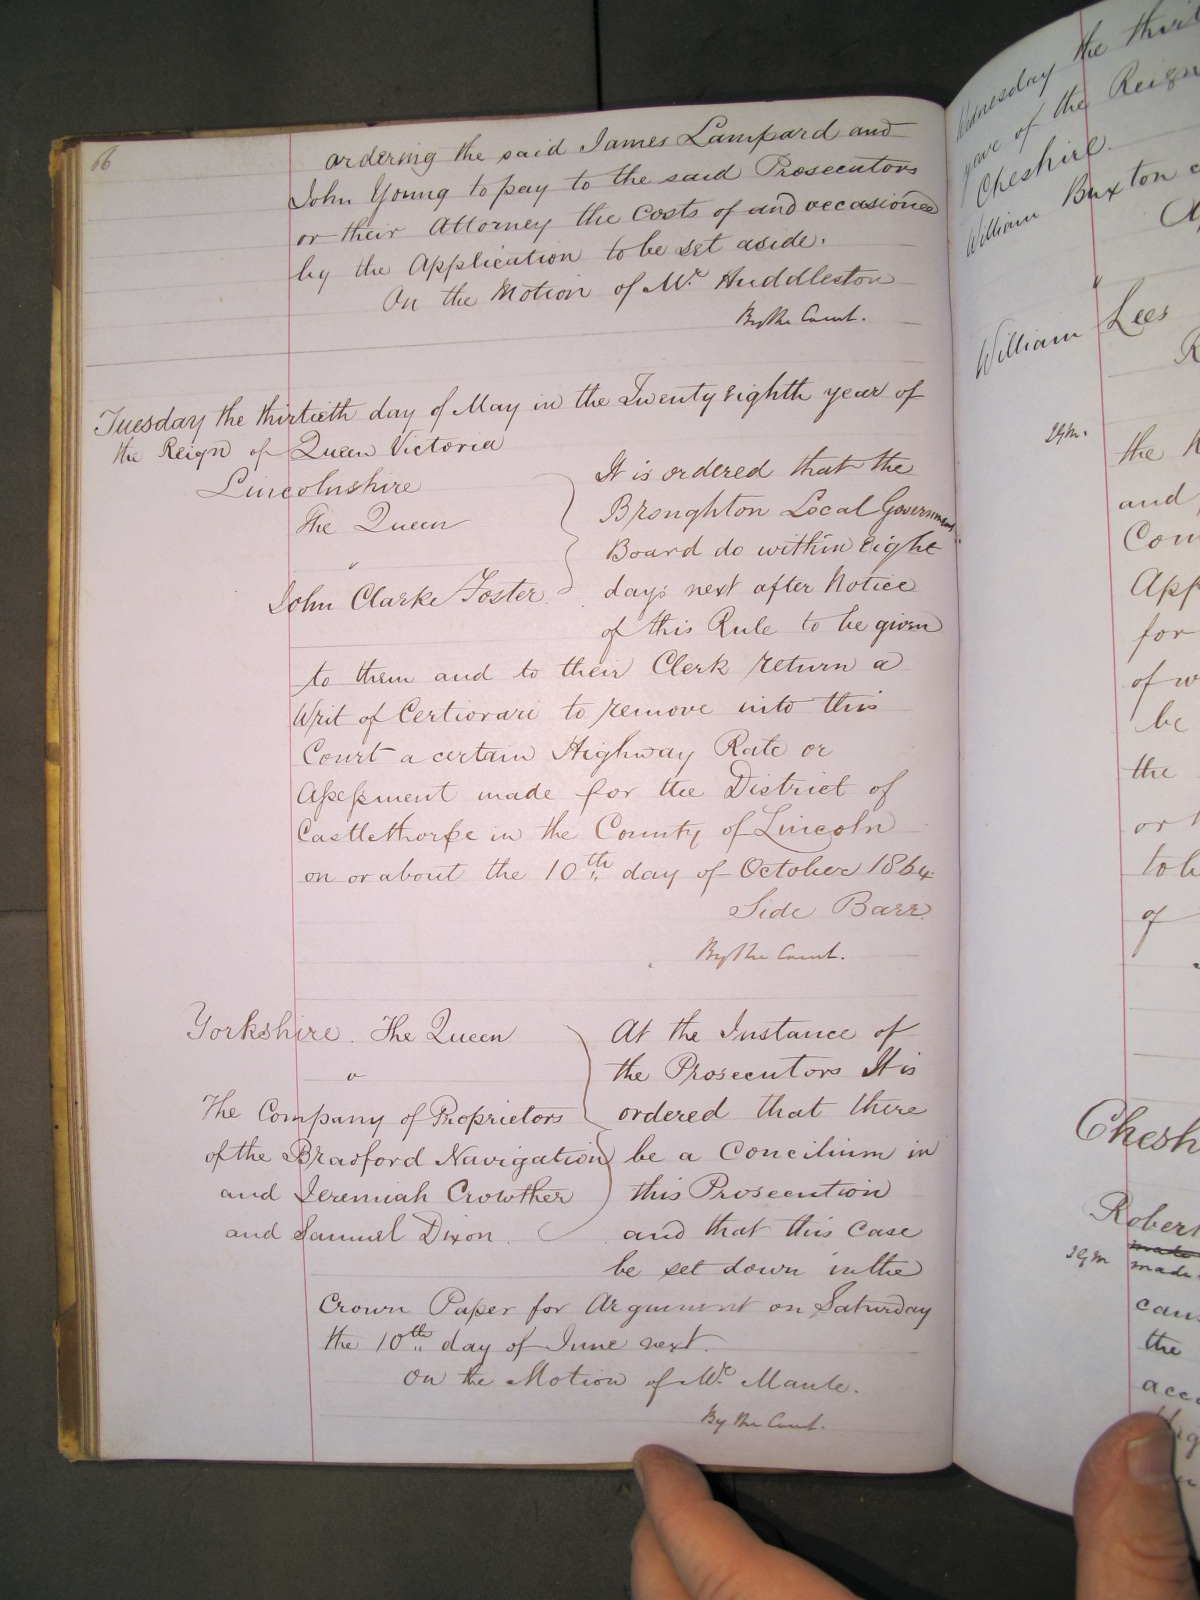 66
ordering the said James Lampard and
John Young to pay to the said Prosecutors
or their Attorney the Costs of and occasioned
by the Application to be set aside.
On the Motion of Mr. Huddleston
By the Court.
Tuesday the thirtieth day of May in the Twenty eighth year of
the Reign of Queen Victoria
Lincolnshire
The Queen
v
John Clarke Foster
It is ordered that the
Broughton Local Government
Board do within eight
days next after Notice
of this Rule to be given
to them and to their Clerk return a
Writ of Certiorari to remove into this
Court a certain Highway Rate or
Assessment made for the District of
Castlethorpe in the County of Lincoln
on or about the 10th day of October 1864
Side Barr.
By the Court.
Yorkshire. The Queen
v
The Company of Proprietors
of the Bradford Navigation
and Jeremiah Crowther
and Samuel Dixon.
At the Instance of
the Prosecutors It is
ordered that there
be a Concilium in
this Prosecution
and that this Case
be set down in the
Crown Paper for Argument on Saturday
the 10th day of June next.
On the Motion of Mr. Maule.
By the Court.
Wednesday the
year of the Reign
Cheshire.
William Buxton
William Lees
the
and
for
of
be
the
or
of
the